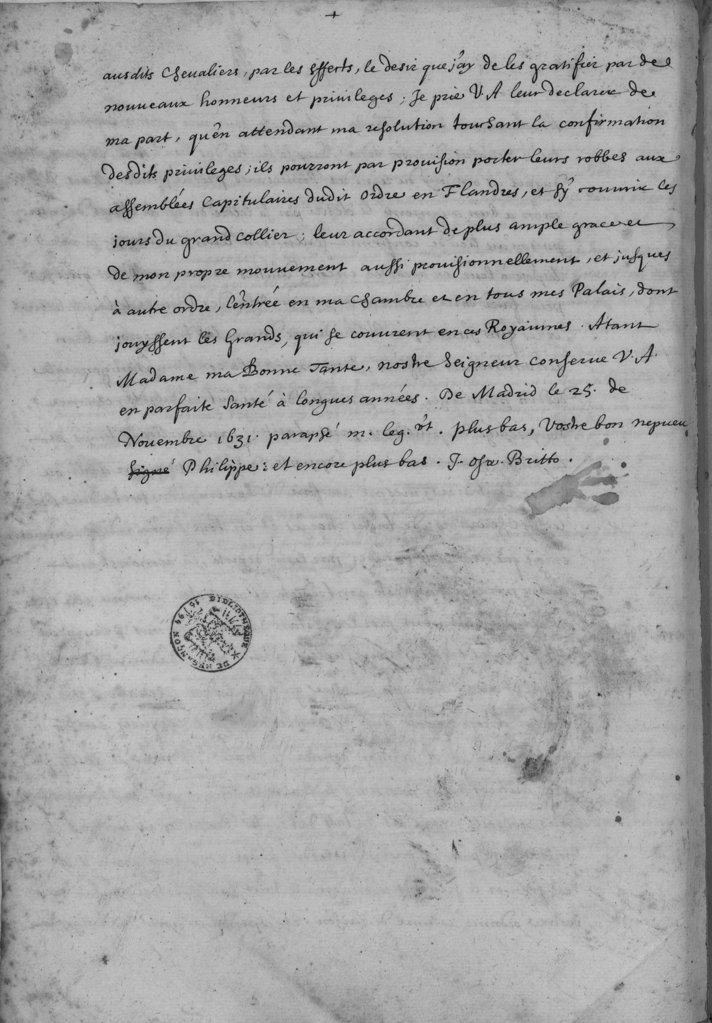 +
ausdits Chevaliers, par les effects, le desir que j'ay de les gratifier par de
nouveaux honneurs et privileges; Je prie V A leur declarer de
ma part, qu'en attendant ma resolution touchant la confirmation
desdits privileges; ils pourront par provision porter leurs robbes aux
assemblées Capitulaires dudit Ordre en Flandres, et s'y couvrir les
jours du grand Collier; leur accordant de plus ample grace et
de mon propre mouvement aussi provisionnellement, et jusques
à autre ordre, l'entrée en ma chambre et en tous mes Palais, dont
jouyssent les Grands, qui se couvrent en ces Royaumes. Atant
Madame ma Bonne Tante, nostre Seigneur conserve V. A.
en parfaite santé à longues années. De Madrid le 25. de
Novembre 1631. paraphé m. leg. vt. plus bas, Vostre bon nepveu
signé Philippe: et encore plus bas. J. Osw. Britto.
BIBLIOTHEQUE DE BESANÇON